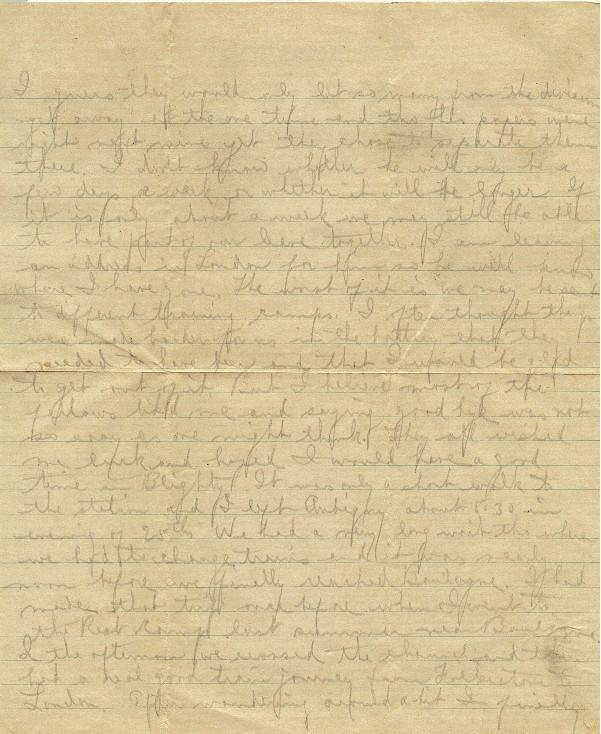 I guess they would only let so many from the division
get away at the one time and tho his papers were
right next mine yet they chose to separate them
there. I don't know whether he will only be a
few days or week or whether it will be longer. If
it is only about a week we may still be able
to have part of our leave together. I am leaving
an address in London for him so he will know
where I have gone. The worst of it is we may be sent
to different training camps. I often thought things
were made harder for us in the battery than they
needed to have been and that I would be glad
to get out of it but I believe most of the
fellows liked me and saying good bye was not
so easy as one might think. They all wished
me luck and hoped I would have a good
time in Blighty. It was only a short walk to
the station and I left Aubigny about 5:30 in
evening of 25th. We had a very long wait tho where
we had to change trains and it was nearly
noon before we finally reached Boulogne. I had
made that trip once before when I went to
the Rest Camp last summer near Boulogne.
I the afternoon we crossed the channel and then
had a real good train journey from Folkestone to
London. After wandering around a bit I finally